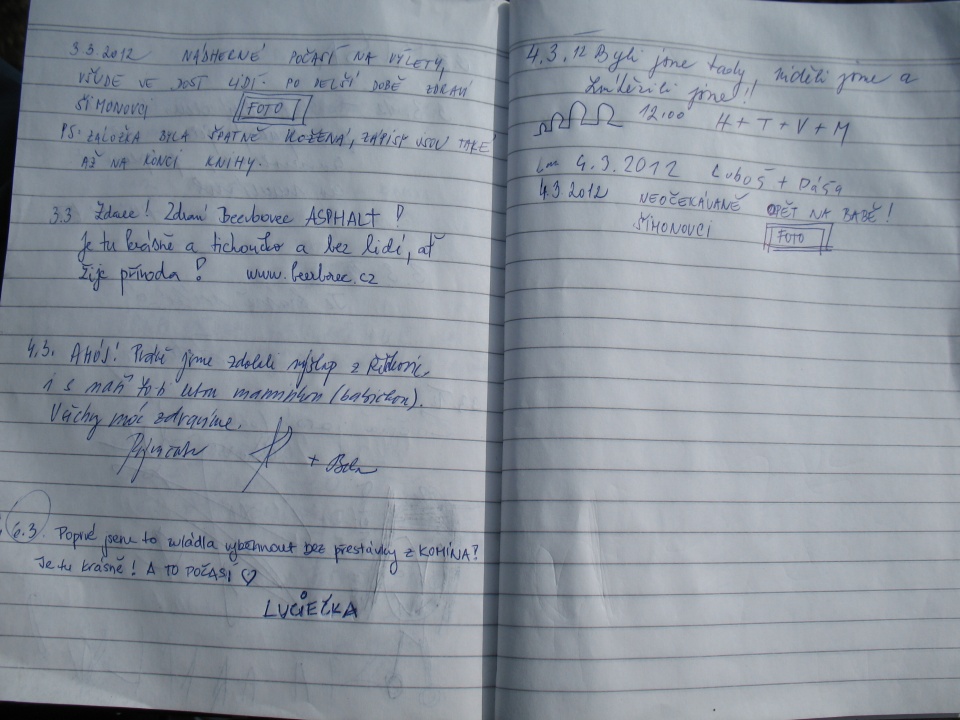 3.3.2012 NÁDHERNÉ POČASÍ NA VÝLETY,
VŠUDE VE DOST LIDÍ. PO DELŠÍ DOBĚ ZDRAVÍ
ŠIMONOVCI FOTO
PS: ZÁLOŽKA BYLA ŠPATNĚ VLOŽENÁ, ZÁPISY JSOU TAKÉ
AŽ NA KONCI KNIHY.
3.3 Zdraví Beerborec ASPHALT!
Je tu krásně a tichoučko a bez lidí, ať
žije příroda! www.beerborec.cz
4.3. AHOJ! Právě jsme zdolali výšlap z
i s maminkou (babičkou).
Všichny moc zdravíme.
+
6.3. Poprvé jsem to zvládla vyběhnout bez přestávky z KOMÍNA!
Je tu krásně! A TO POČASÍ ♡
LUCIEČKA
4.3.12 Byli jsme tady, viděli jsme a
zvítězili jsme!
12.00 H + T + V + M
4.3.2012 Luboš + Dáša
4.3 2012 NEOČEKÁVANĚ OPĚT NA BABĚ!
ŠIMONOVCI FOTO